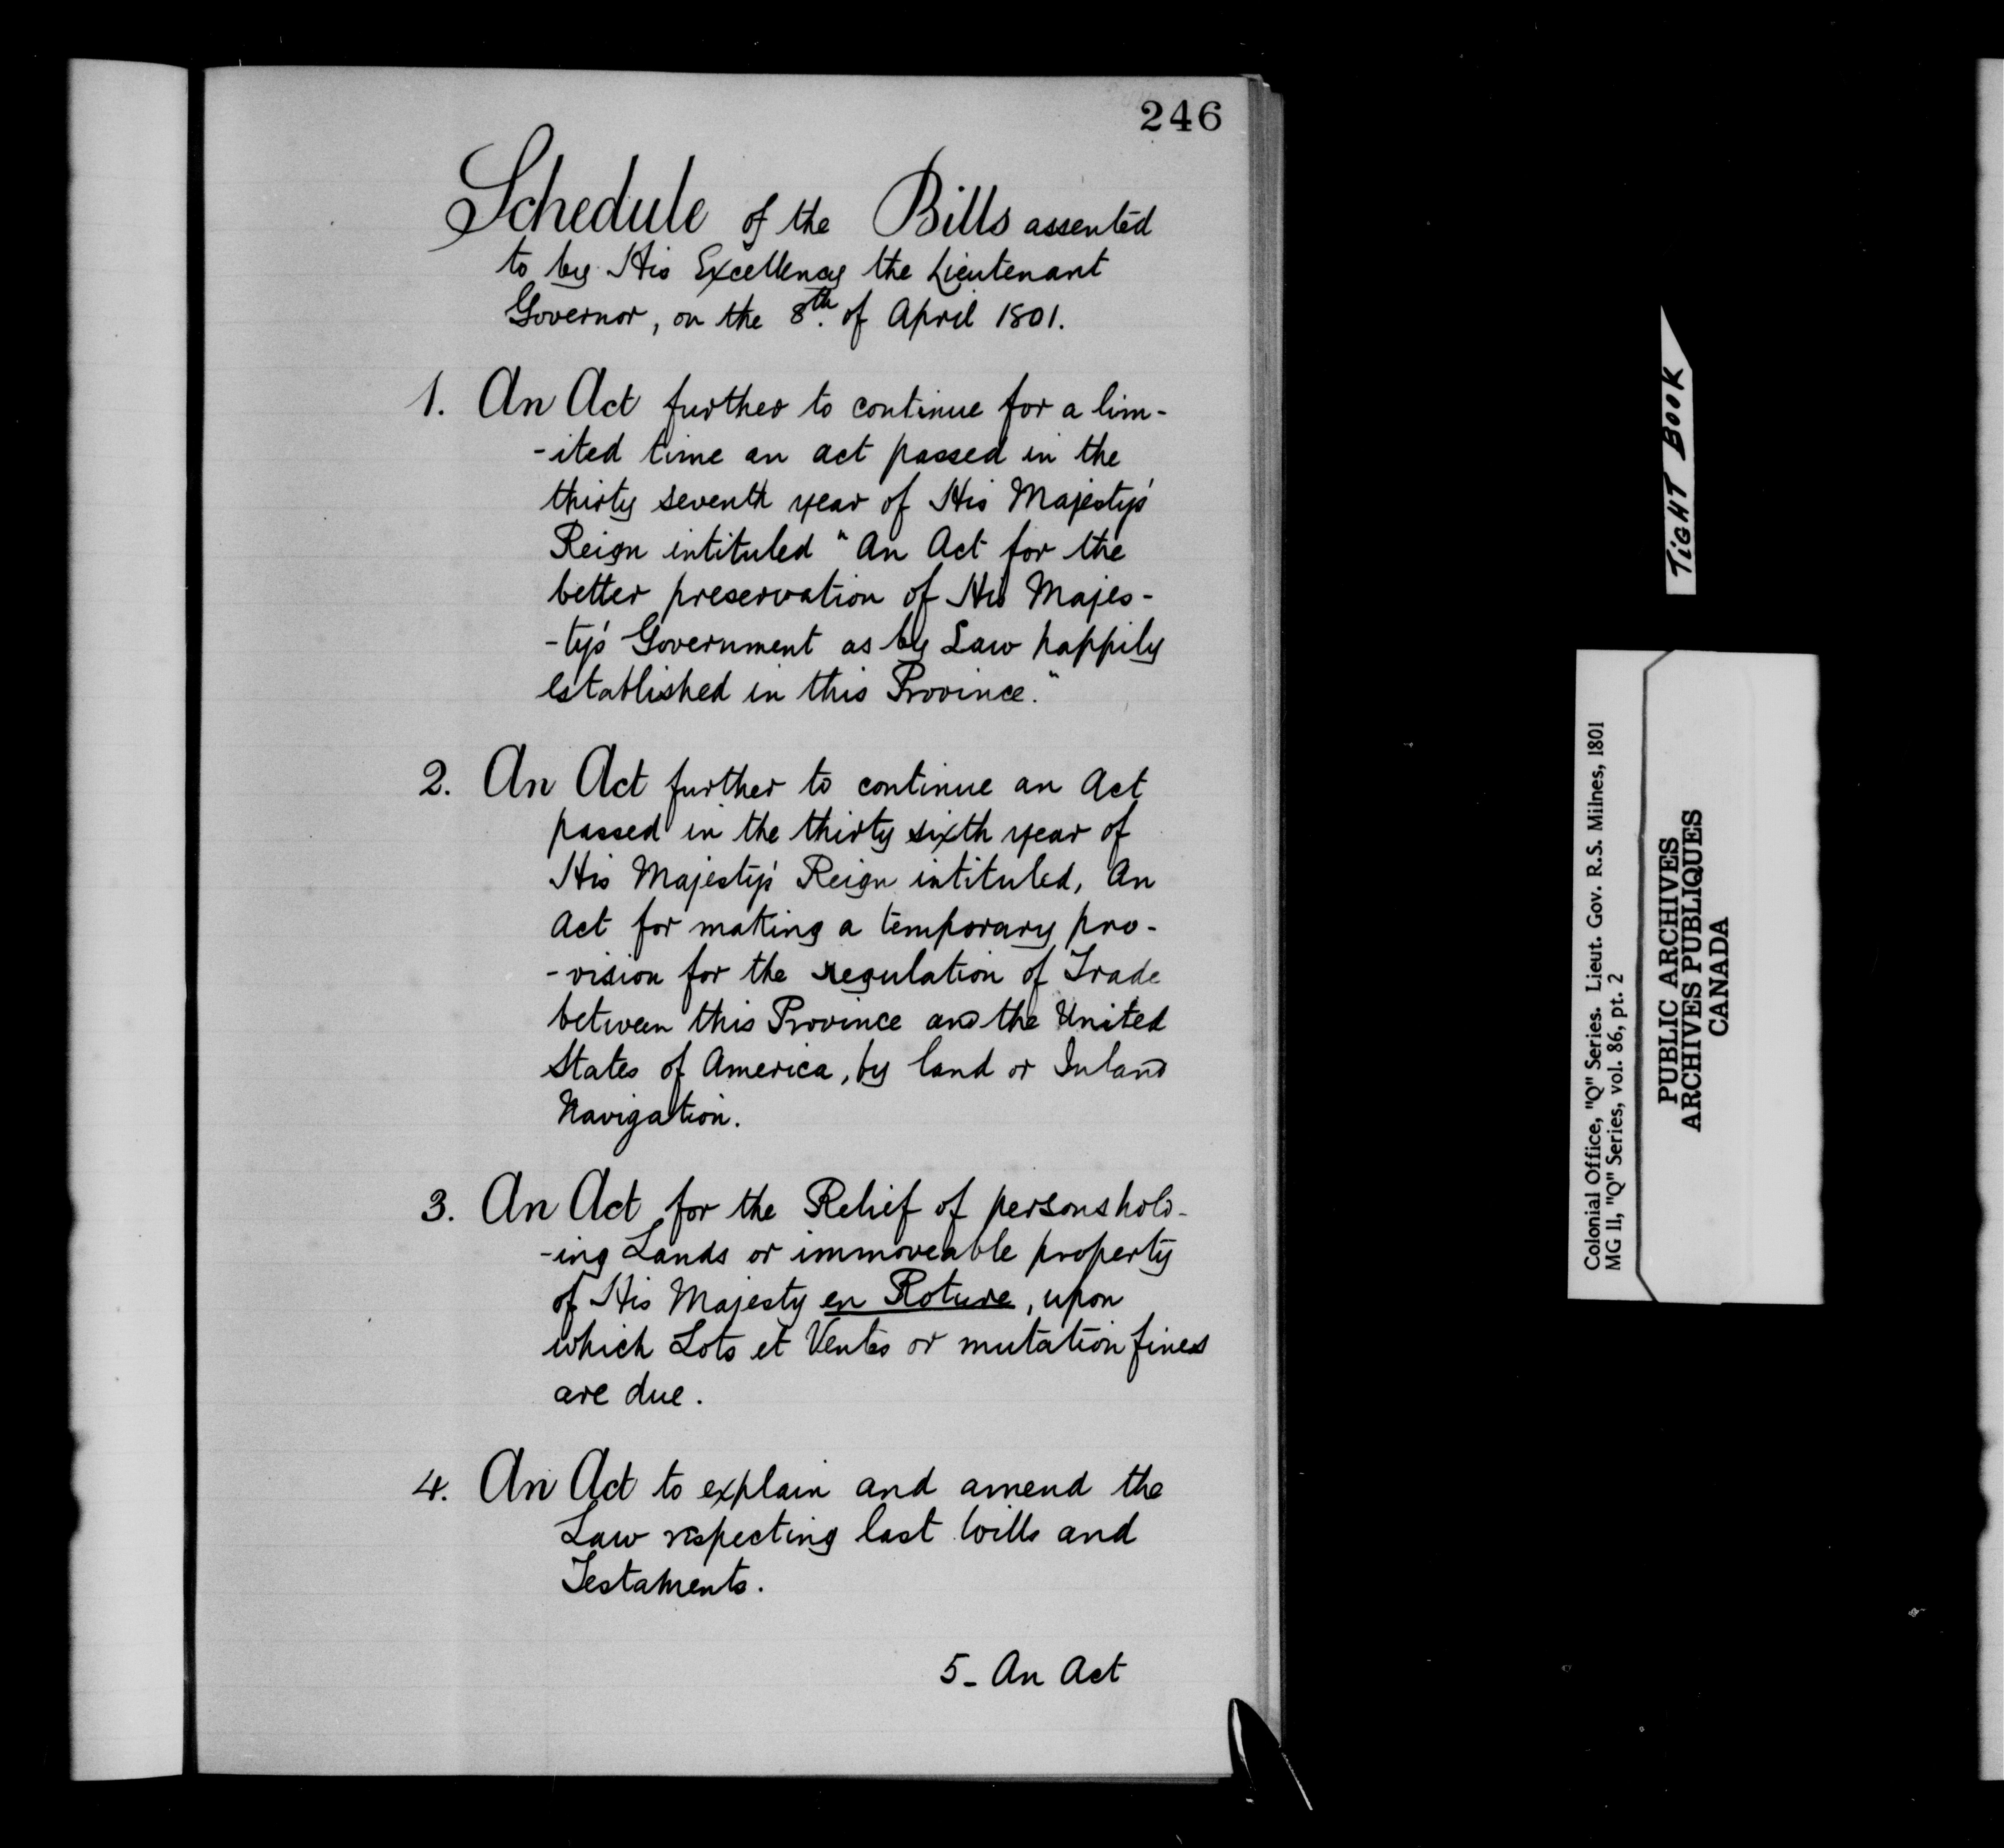 246
Schedule of the Bills assented
to by His Excellency the Lieutenant
Governor, on the 8th. of April 1801.
1. An Act further to continue for a lim-
-ited time an act passed in the
thirty seventh year of His Majesty's
Reign intituled "An Act for the
better preservation of His Majes-
-ty's Government as by Law happily
established in this Province."
2. An Act further to continue an Act
passed in the thirty sixth year of
His Majesty's Reign intituled, An
Act for making a temporary pro-
-vision for the regulation of Trade
between this Province and the United
States of America, by land or Inland
Navigation.
3. An Act for the Relief of persons hold-
-ing Lands or immoveable property
of His Majesty en Roture, upon
which Lots et Ventes or mutation fines
are due.
4. An Act to explain and amend the
Law respecting last Wills and
Testaments.
5- An Act
TIGHT BOOK
Colonial Office, "Q" Series. Lieut. Gov. R.S. Milnes, 1801
MG 11, "Q" Series, vol. 86, pt. 2
PUBLIC ARCHIVES
ARCHIVES PUBLIQUES
CANADA